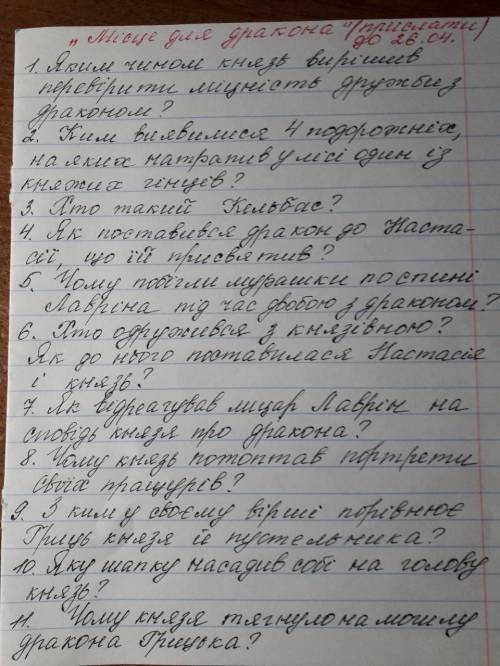 „Місце для дракона" (прислати)
до 26.04.
1. Яким чином князь вирішив
перевірити міцність дружби з
драконом?
2. Ким виявилися 4 подорожніх,
на яких натрапив у лісі один із
княжих гінців?
3. Хто такий Кельбас?
4. Як поставився дракон до Наста-
сії, що їй присвятив?
5. Чому побігли мурашки по спині
Лавріна під час двобою з драконом?
6. Хто одружився з князівною?
Як до нього поставилася Настасія
і князь?
7. Як відреагував лицар Лаврін на
сповідь князя про дракона?
8. Чому князь потоптав портрети
своїх пращурів?
9. З ким у своєму вірші порівнює
Гриць князя й пустельника?
10. Яку шапку насадив собі на голову
князь?
11. Чому князя тягнуло на могилу
дракона Грицька?